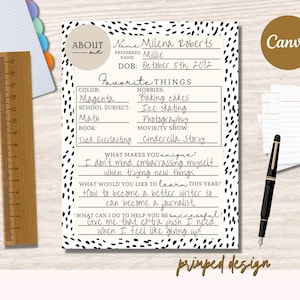 ABOUT me
Name Milena Roberts
PREFERRED NAME Millie
DOB: October 5th, 2012
Canva
Favorite THINGS
COLOR: HOBBIES:
Magenta Baking cakes
SCHOOL SUBJECT: Ice skating
Math Photography
BOOK: MOVIE/TV SHOW:
Tuck Everlasting Cinderella Story
WHAT MAKES YOU unique?
I don't mind embarrassing myself
when trying new things.
WHAT WOULD YOU LIKE TO learn THIS YEAR?
How to become a better writer so I
can become a journalist.
WHAT CAN I DO TO HELP YOU BE successful?
Give me that extra push I need
when I feel like giving up!
primped design